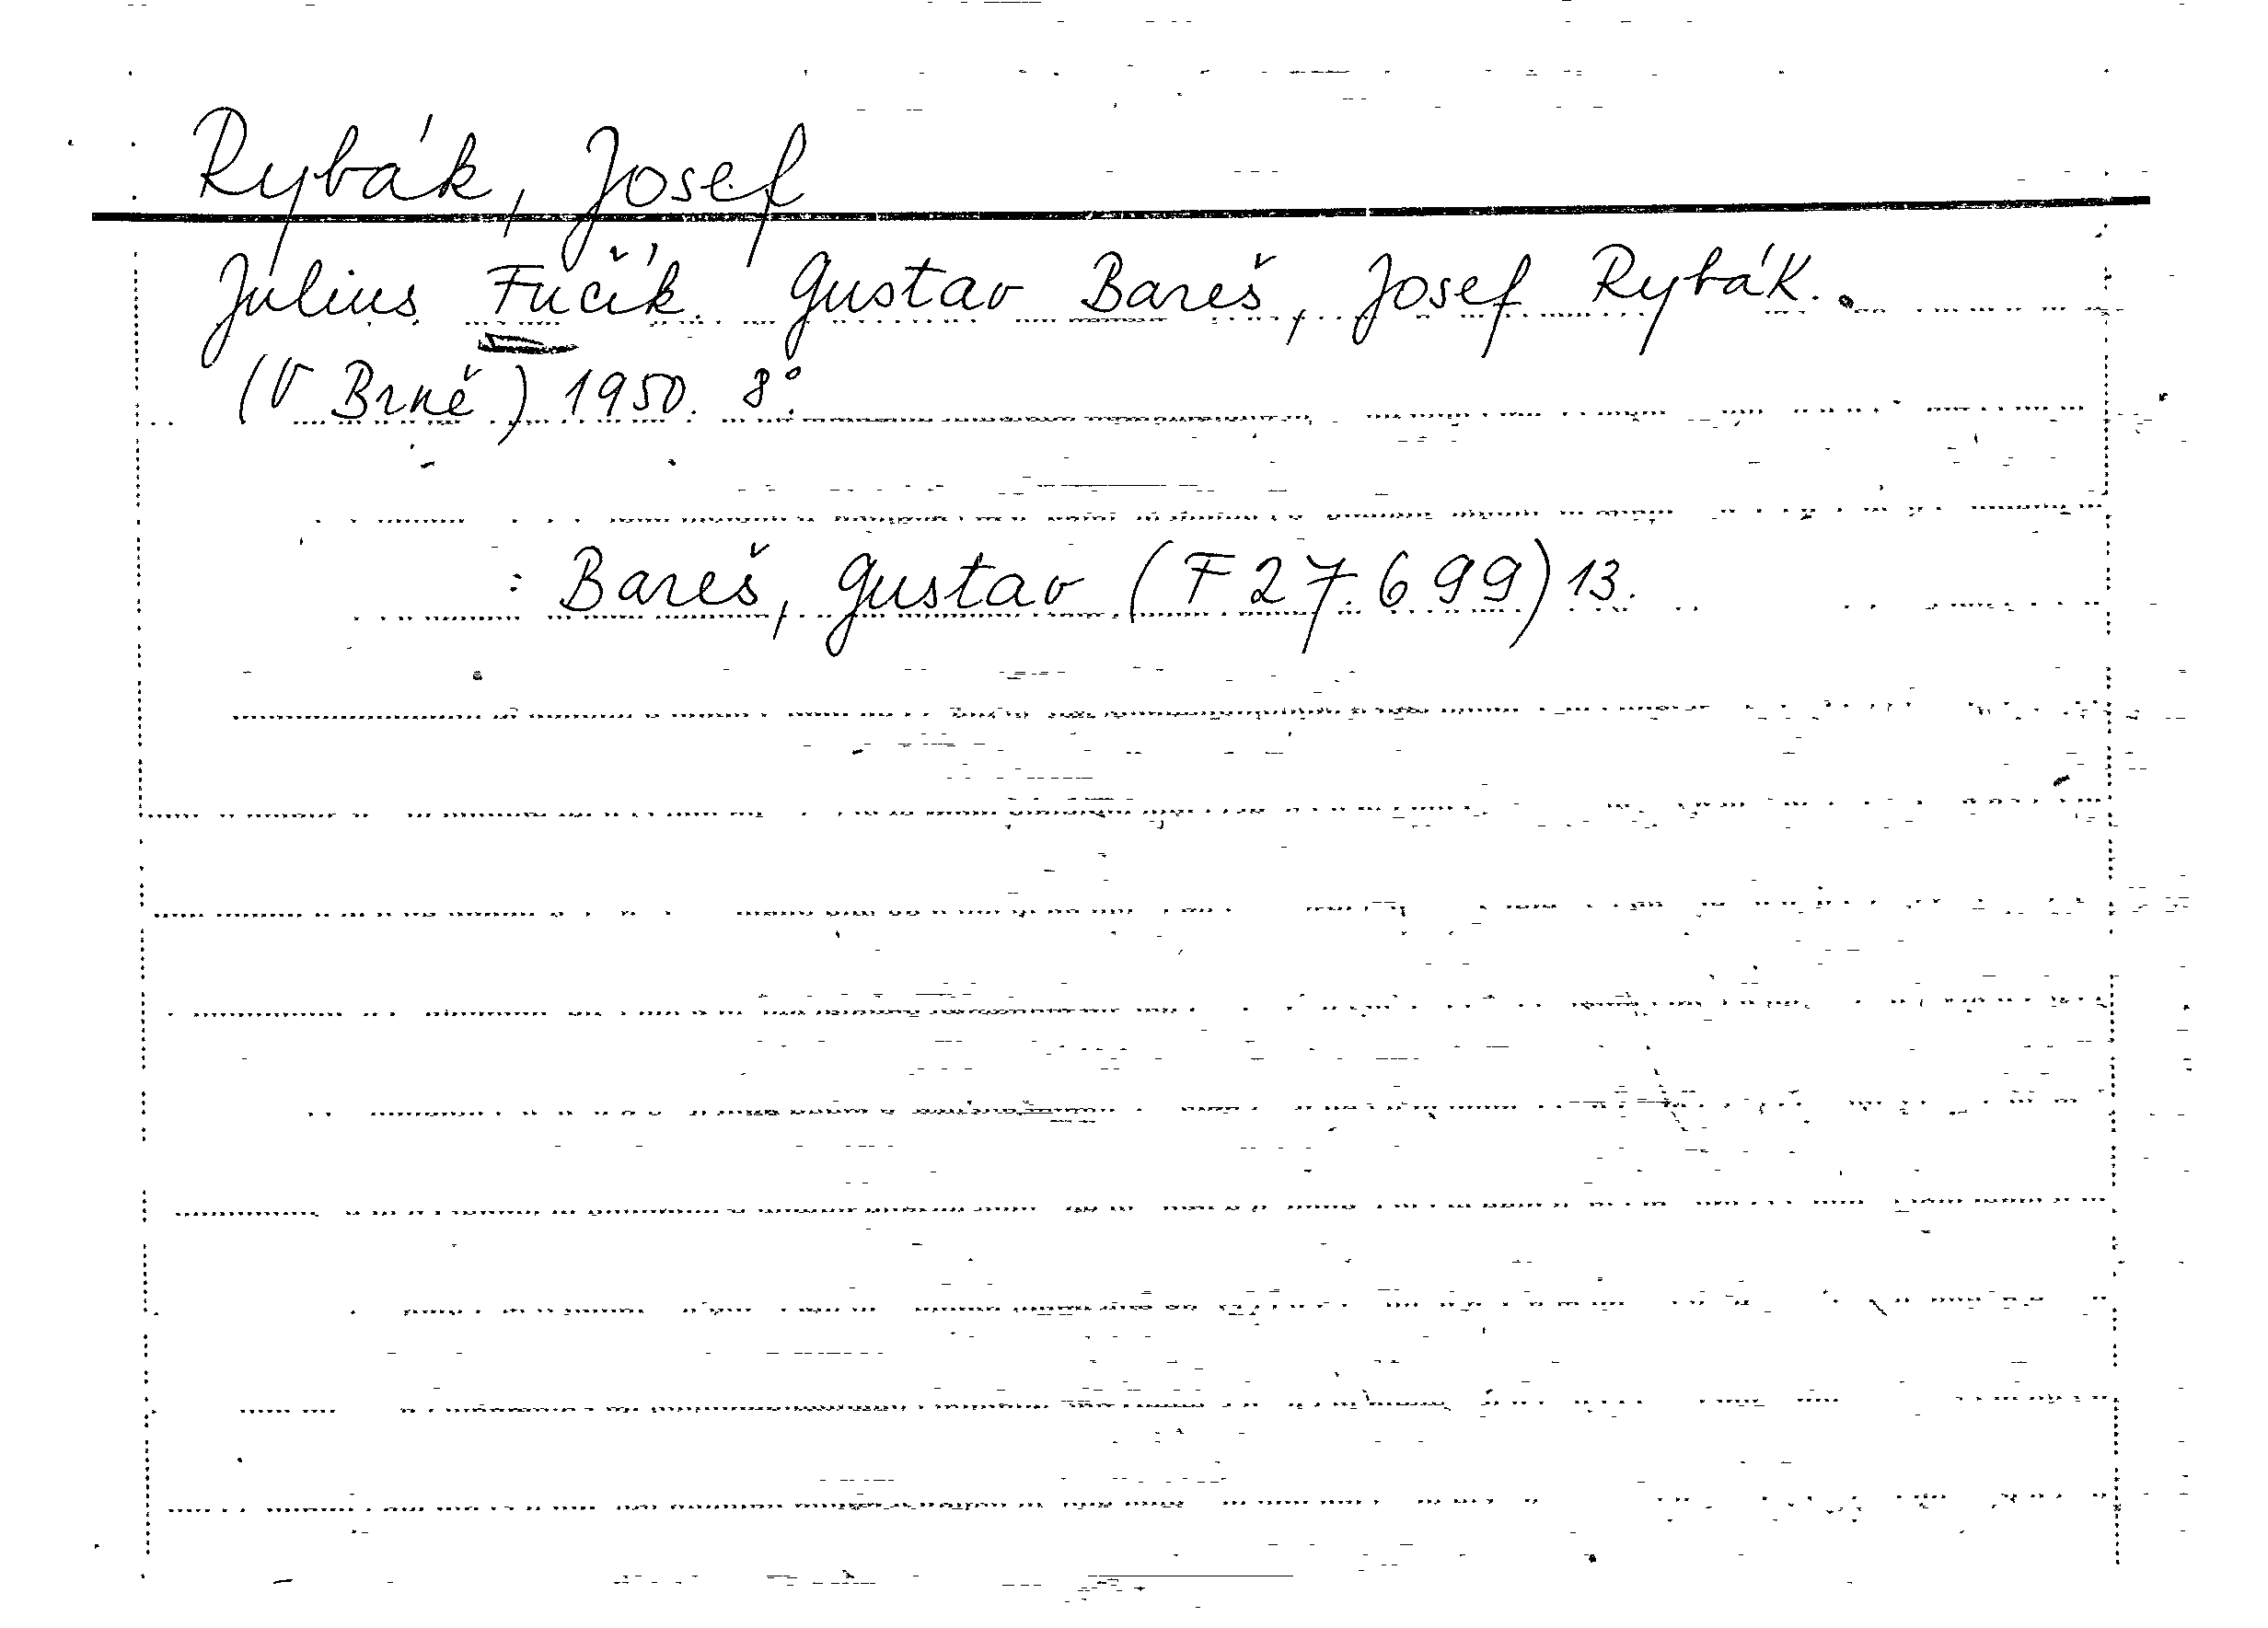 Rybák, Josef
Julius Fučík. Gustav Bareš, Josef Rybák.
(V Brně) 1950. 8°.
: Bareš, Gustav (F 27.699) 13.